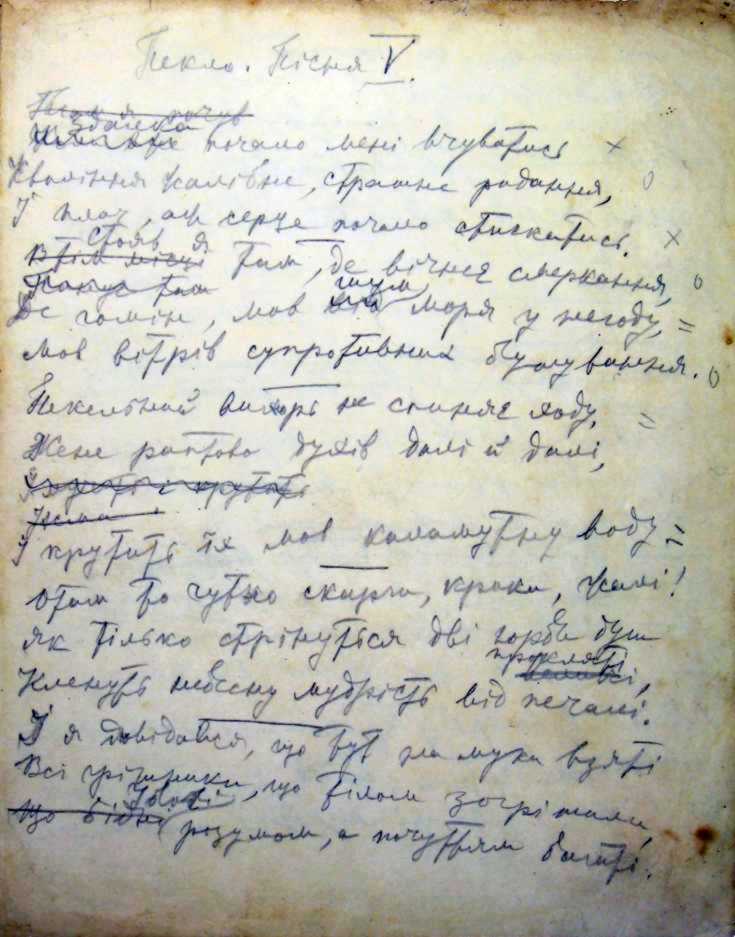 Пекло. Пісня V.
Здалека почало мені вчуватись
Квиління жалібне, страшне ридання,
І плач, аж серце почало стискатись.
Стояв я
в тім місці там, де вічнеє смеркання,
шум
Де гомін, мов моря у негоду,
мов вітрів супротивних бушування.
Пекельний вихорь не спиняє ходу,
Жене раптово духів далі й далі,
І крутить їх мов каламутну воду
Отам то чутно скарги, крики, жалі!
Як тілько стрінуться дві юрби душ
прокляті,
Кленуть небесну мудрість від печалі.
І я довідався, що тут на муки взяті
Всі грішники, що тілом згрішили,
Що бідні розумом, а почуттям багаті.